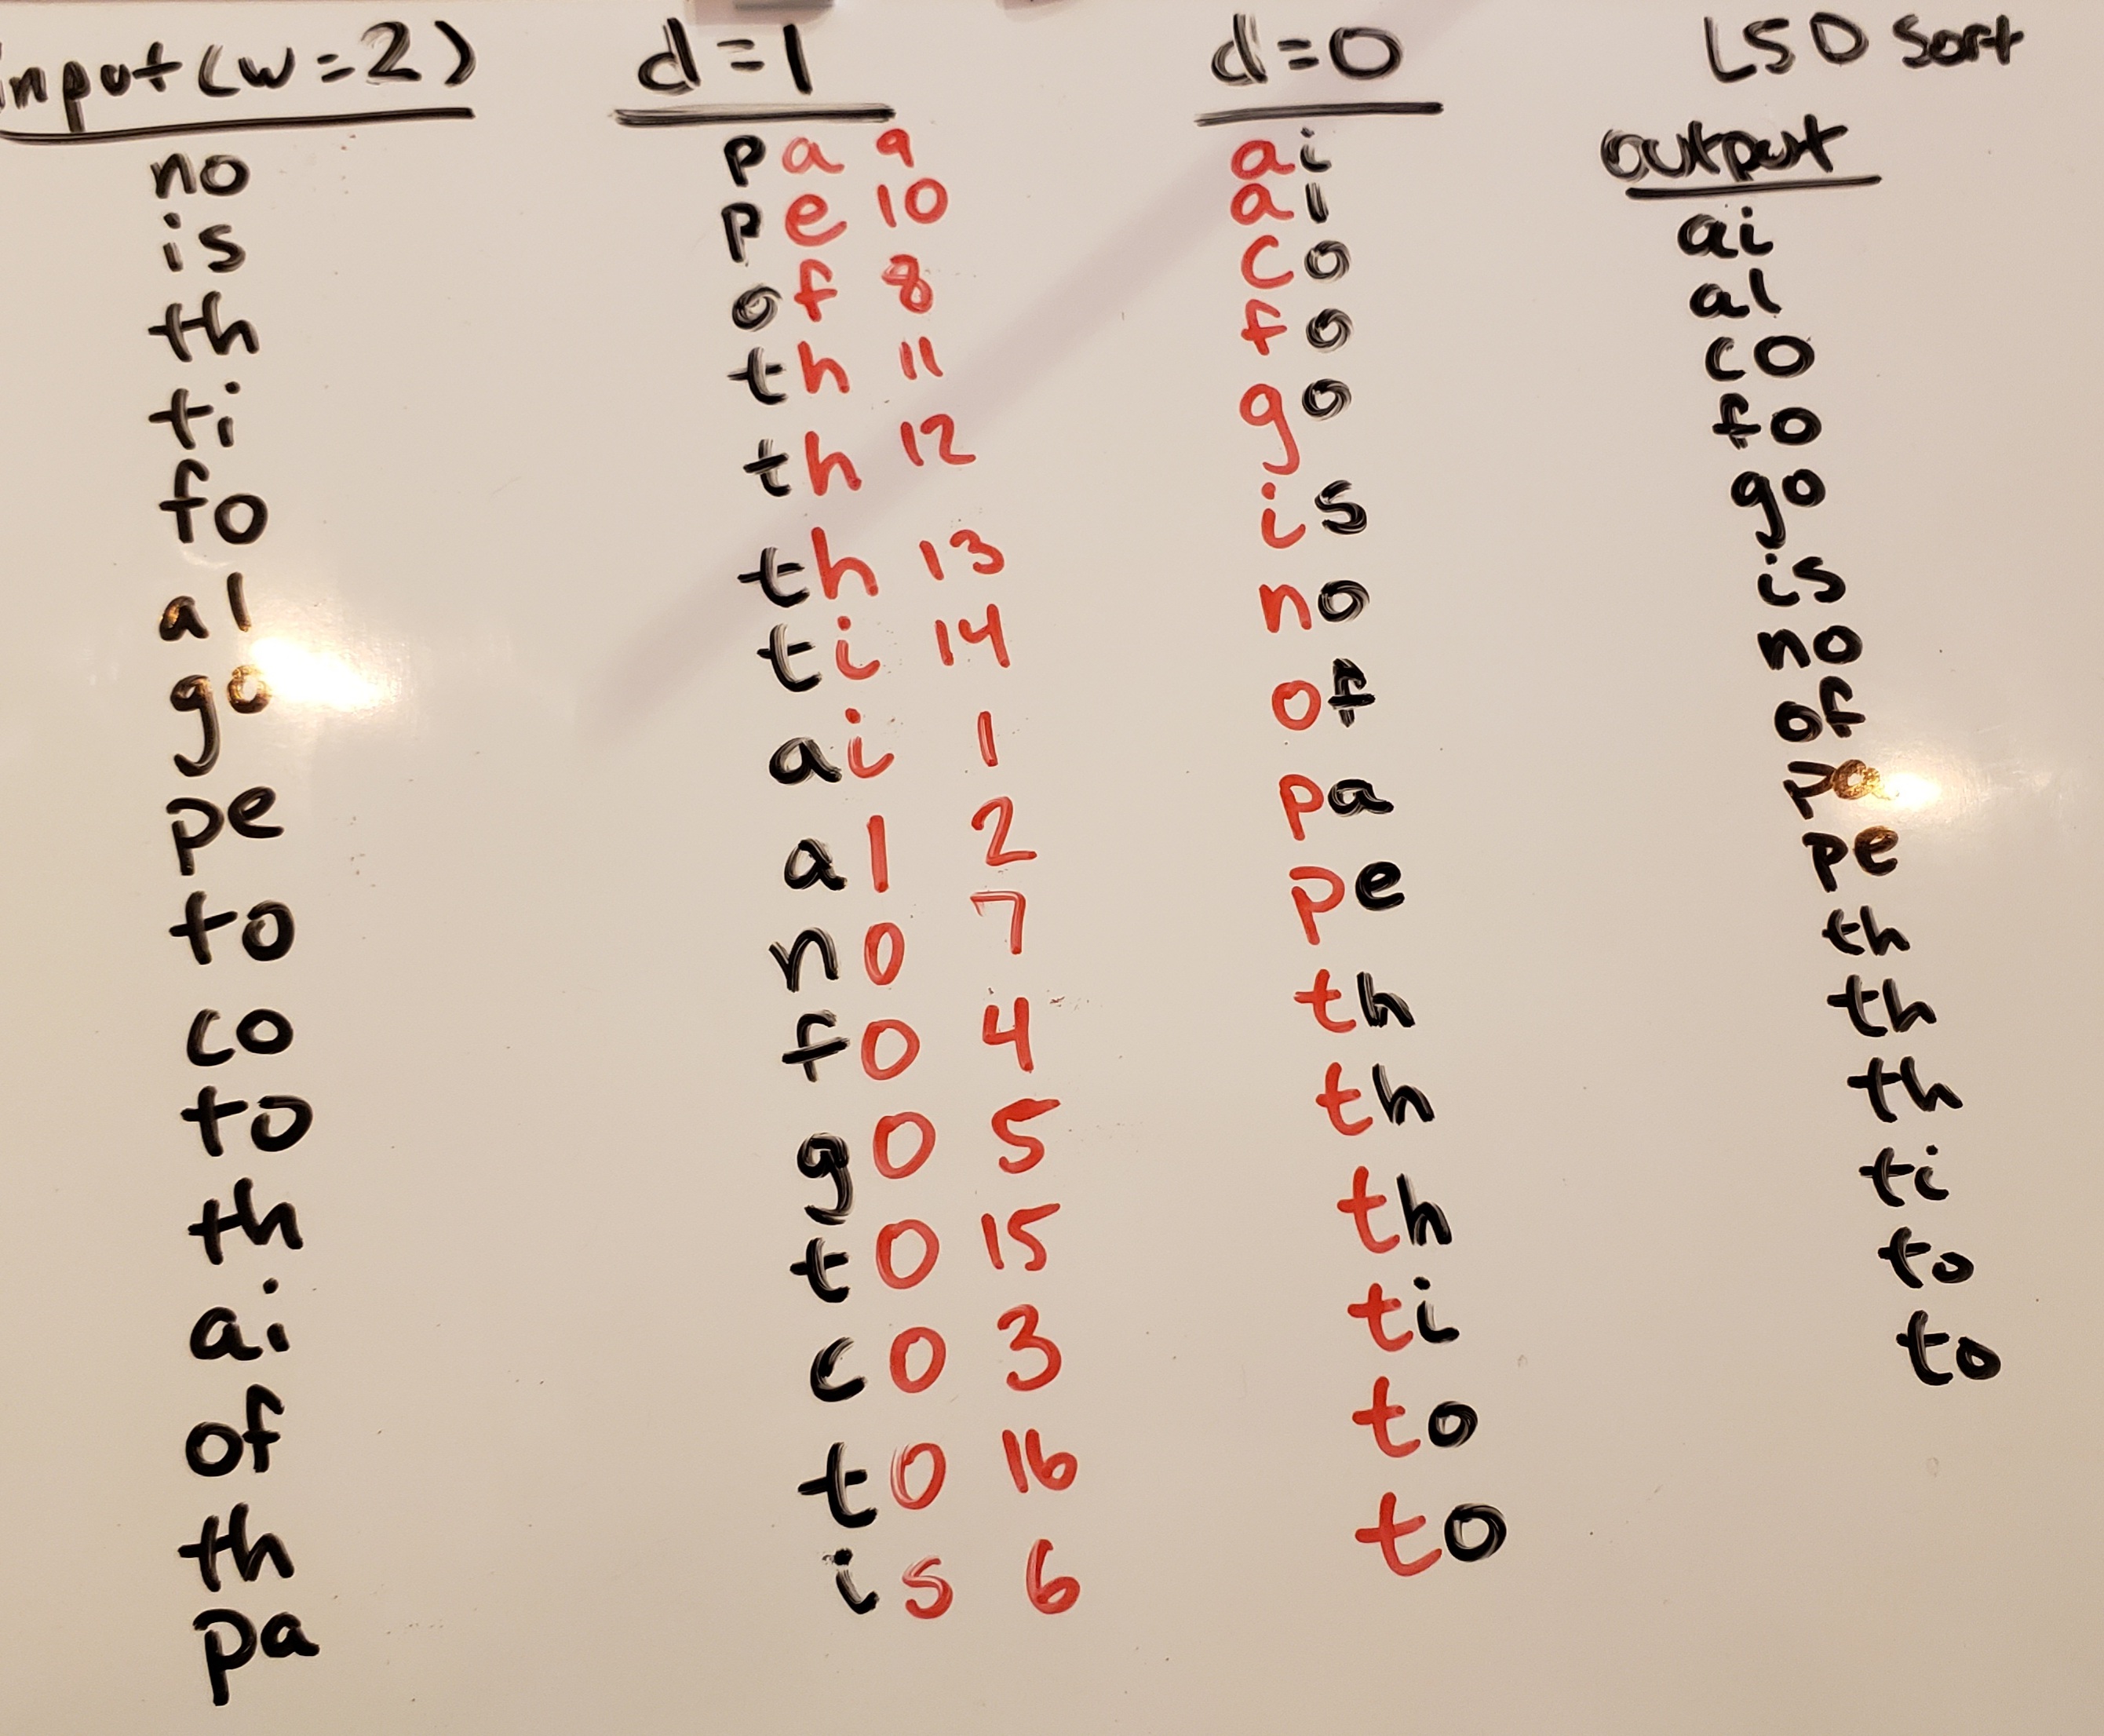 input (w=2)
no
is
th
ti
fo
al
go
pe
to
co
to
th
ai
of
th
pa
d=1
pa 9
pe 10
of 8
th 11
th 12
th 13
ti 14
ai 1
al 2
no 7
fo 4
go 5
to 15
co 3
to 16
is 6
d=0
ai
al
co
fo
go
is
no
of
pa
pe
th
th
th
ti
to
to
LSD Sort
output
ai
al
co
fo
go
is
no
of
pa
pe
th
th
th
ti
to
to